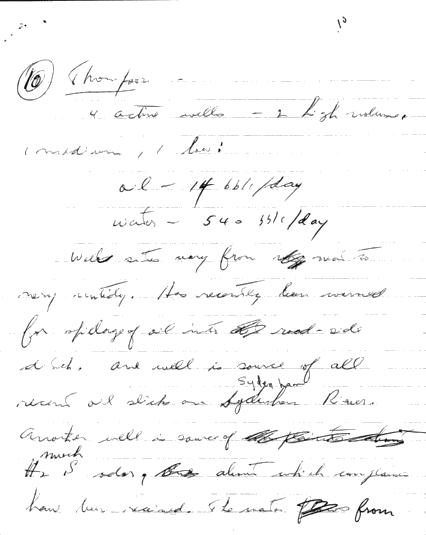 10
(10) Thompson -
4 active wells - 2 high volume,
1 medium, 1 low:
oil - 14 bbls/day
water - 540 bbls/day
Well sites vary from neat to
very untidy. Has recently been warned
for spillage of oil into road-side
ditch. One well is source of all
Sydenham
recent oil slicks on Sydenham River.
Another well is source of
much
H2S odor, about which complaints
have been received. The water from